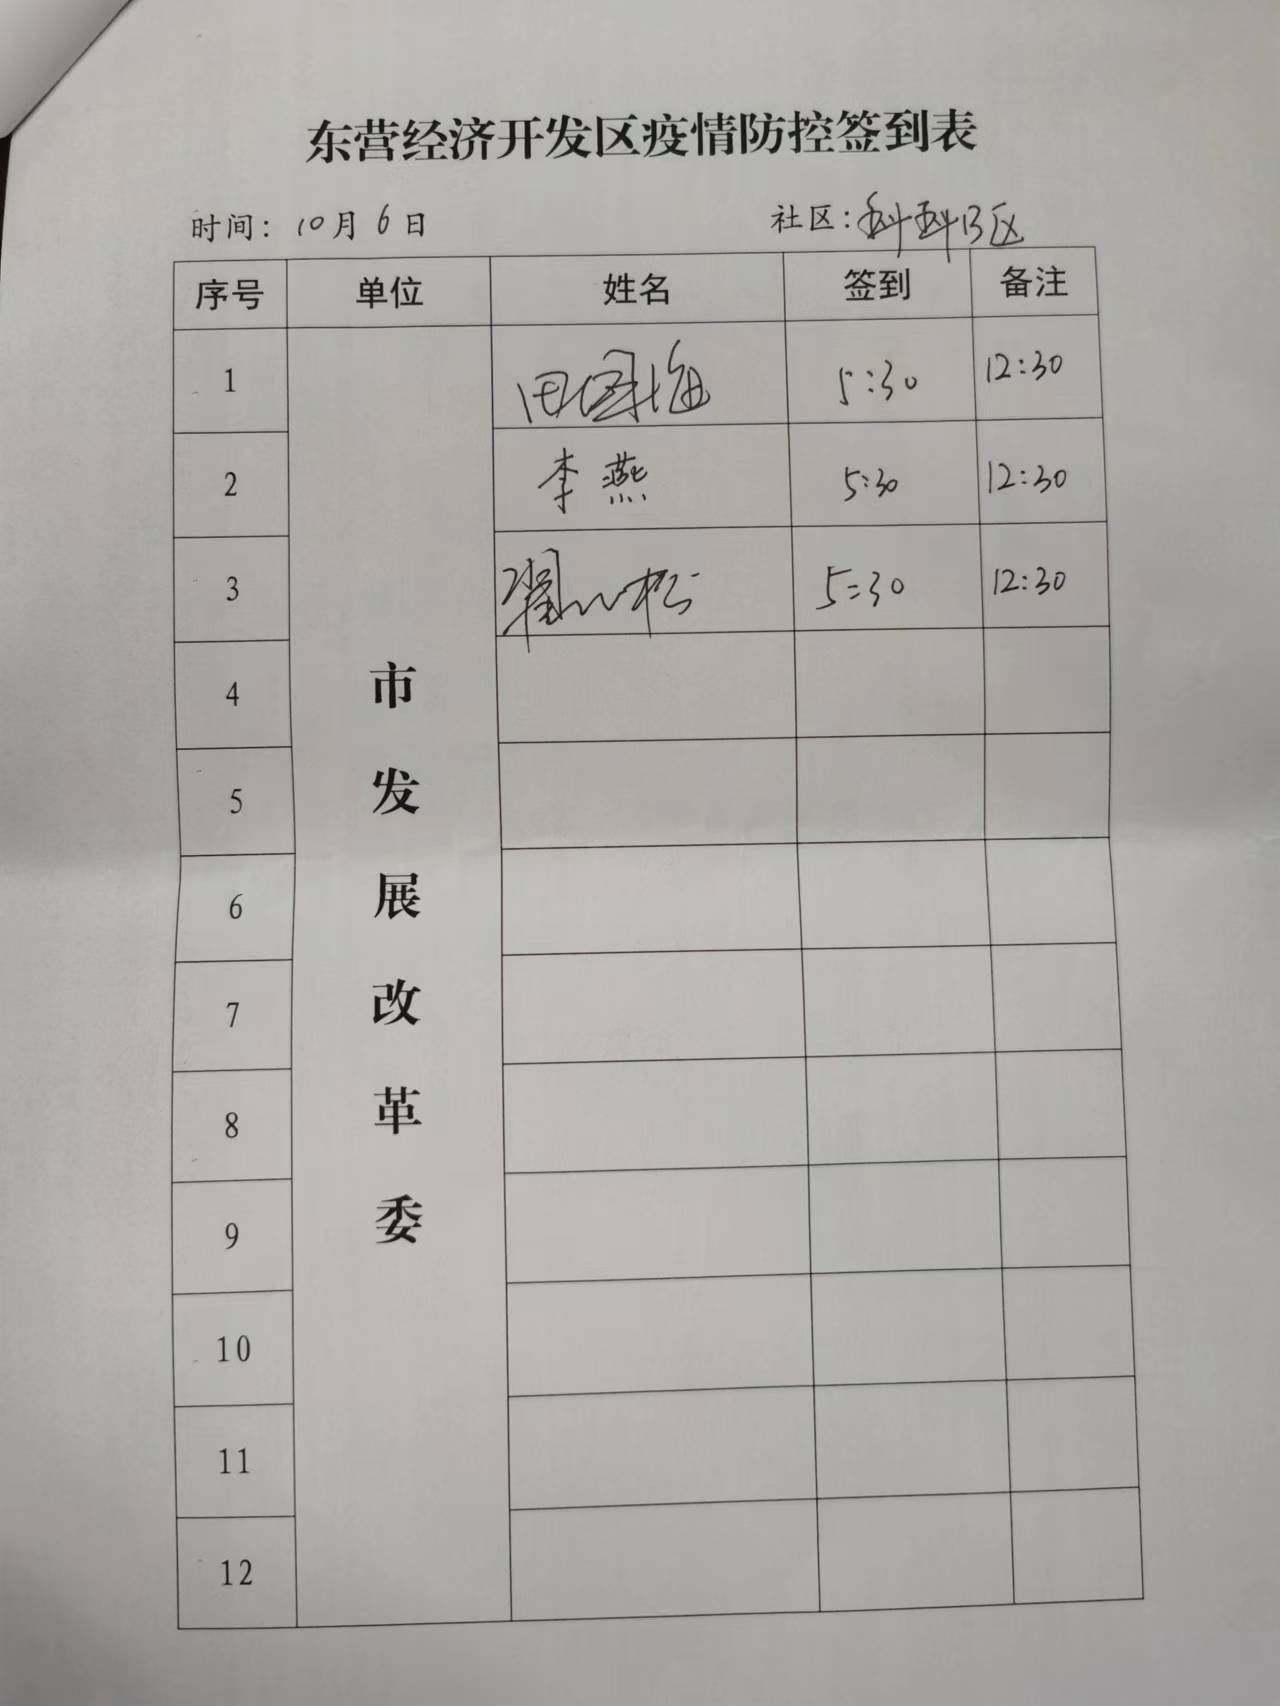 东营经济开发区疫情防控签到表
时间：10月6日 社区：科科B区
序号 单位 姓名 签到 备注
1 田国梅 5:30 12:30
2 李燕 5:30 12:30
3 松 5:30 12:30
4
5
6
7
8
9
10
11
12
市发展改革委